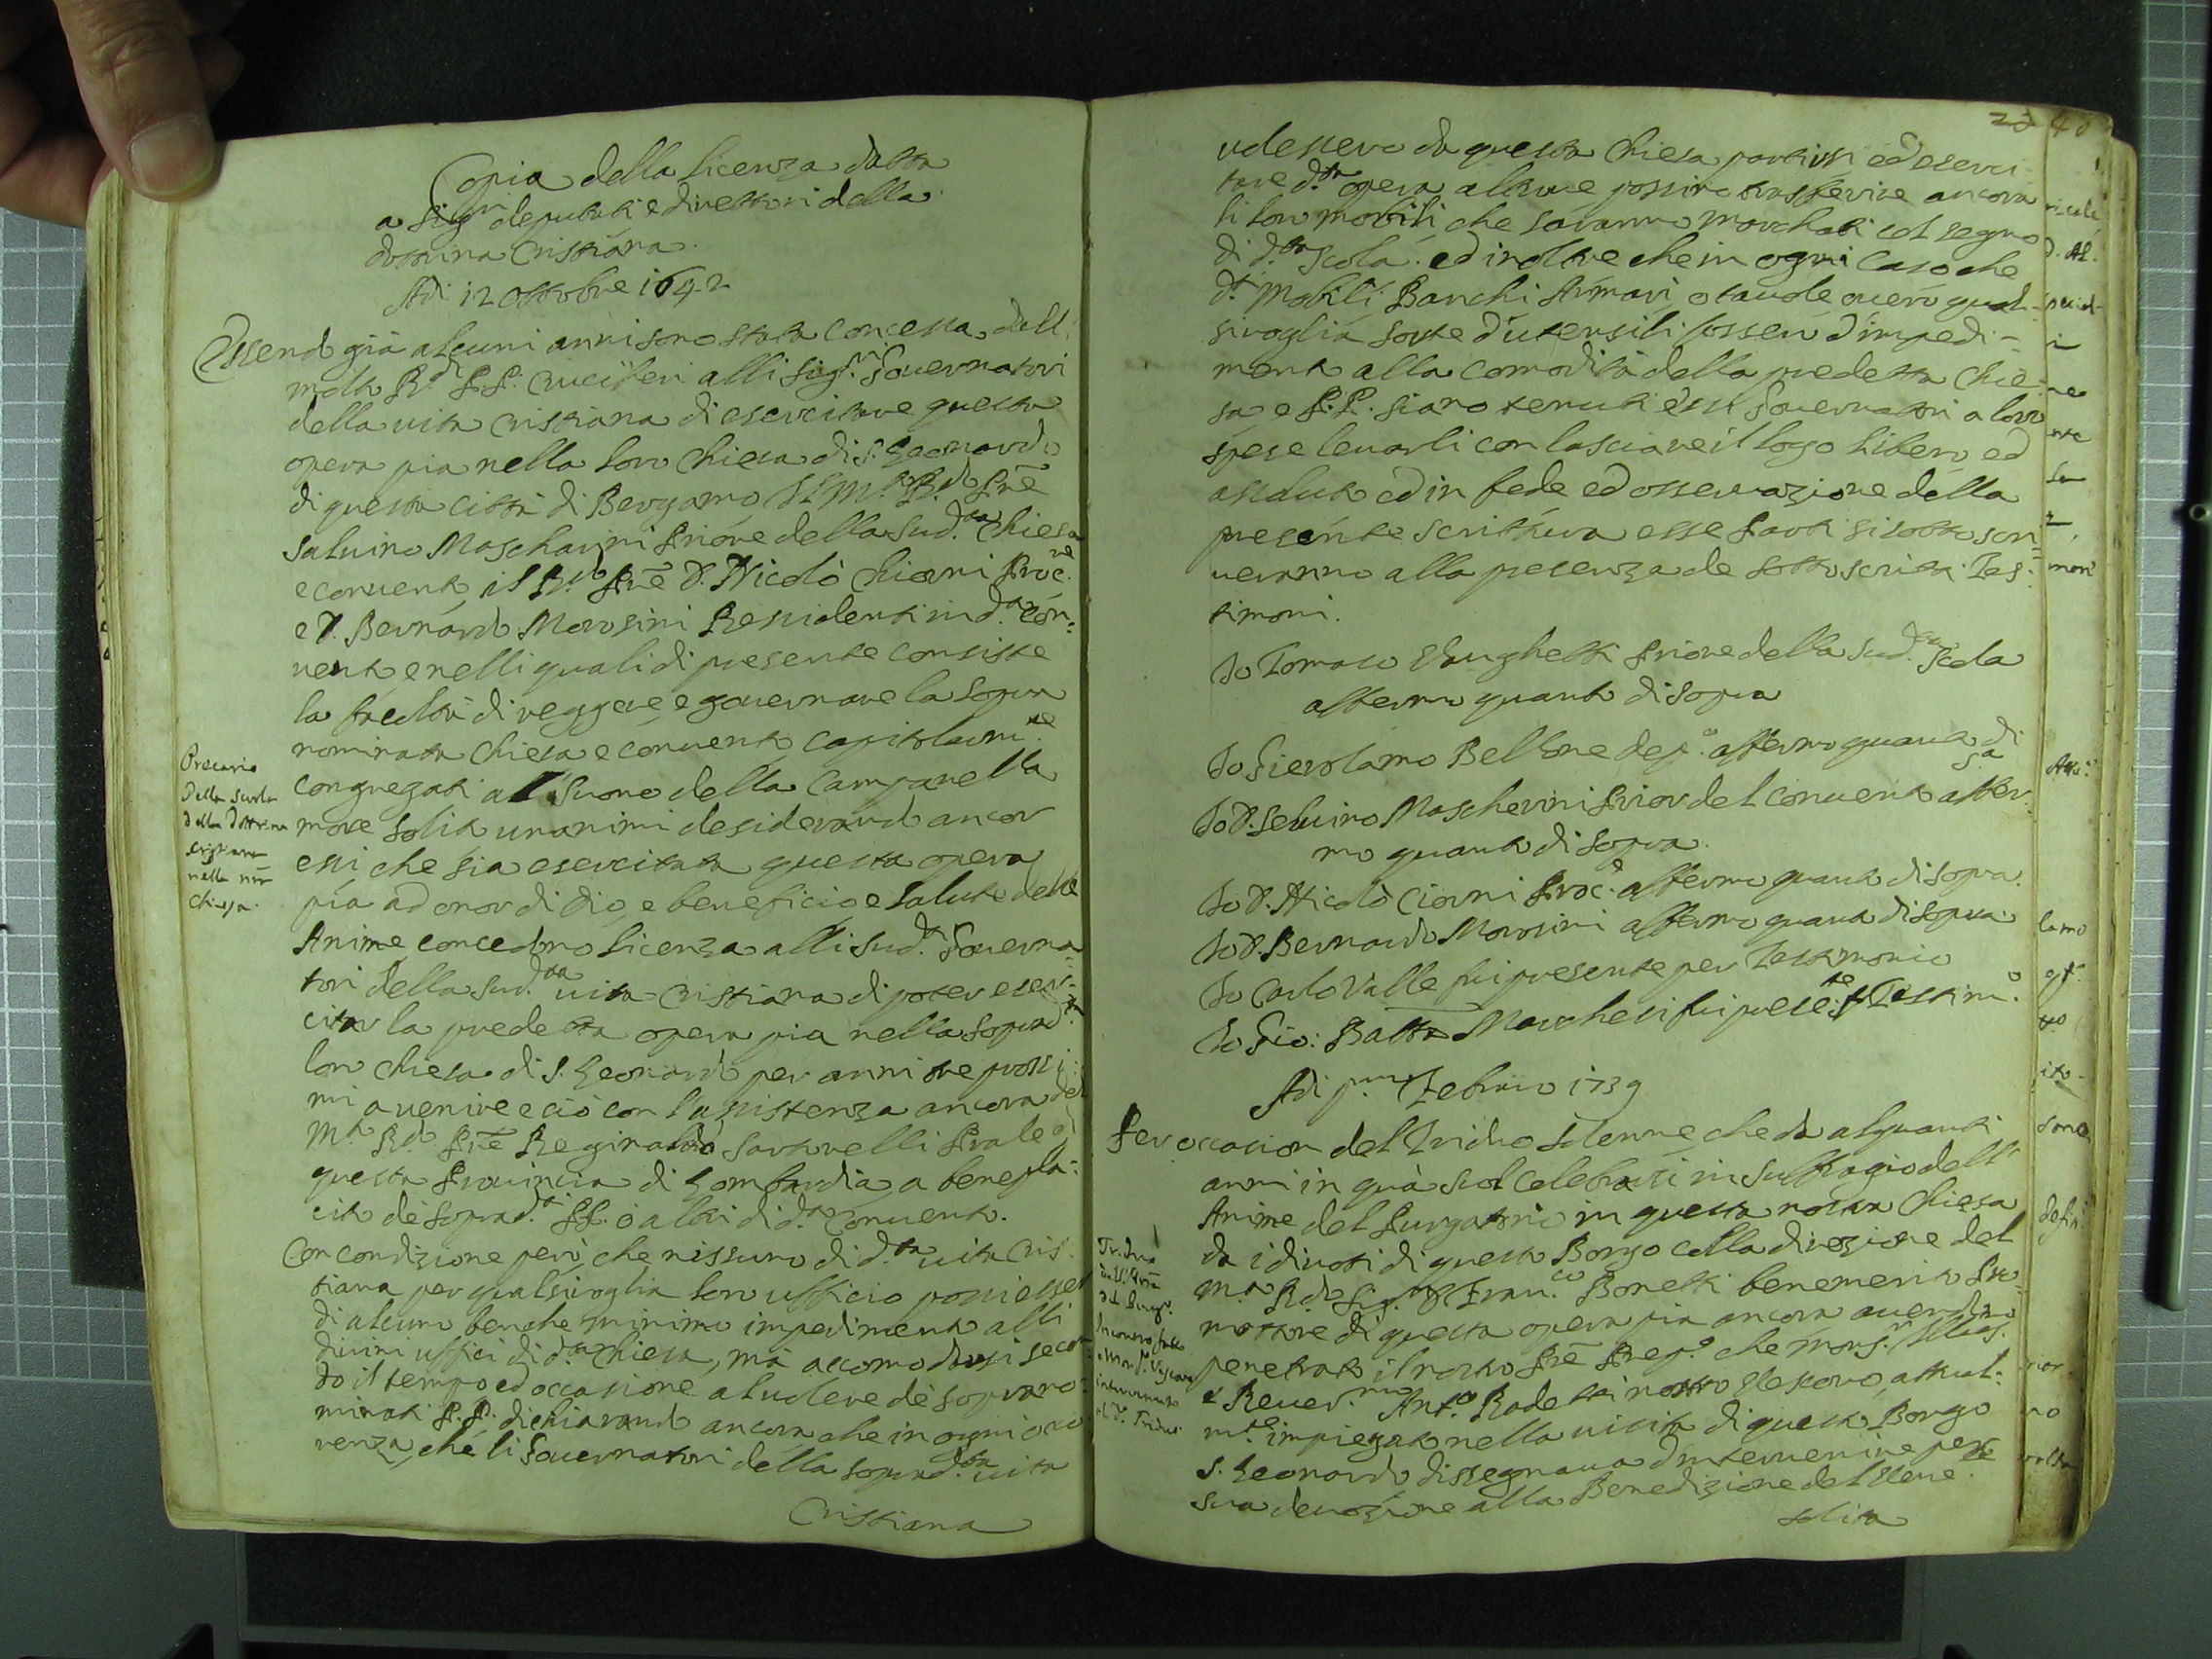 Copia della licenza datta
a Sig.ri deputati e direttori della
dottrina Cristiana.
Adi 12 ottobre 1642
Essend già alcuni anni sono stata concessa dall
molto R.di P.P. Cruciferi alli Sig.ri Governatori
della vita Cristiana di esercitare questa
opera pia nella loro Chiesa di S. Leonardo
di questa città di Bergamo Il M.to R.do Prē
Saluino Mascharini Priore della sud.ta Chiesa
e convento, il R.do Prē D. Nicolò Chiori Proc.re
e D. Bernardo Morosini Ressidenti in d.to Con:
vento, e nelli quali di presente consiste
la facoltà di reggere e governare la sopra
nominata Chiesa e convento capitolarm.te
congregati al Suono della Campanella
more solito unanimi desiderando ancor
essi che sia esercitata questa opera
pia ad onor di Dio, e beneficio e Salute delle
Anime concedono licenza alli sud.ti Governa:
tori della sud.ta vita Cristiana di poter eser:
citar la predetta opera pia nella soprad.ta
loro Chiesa di S. Leonardo per anni tre prossi:
mi a venire e ciò con l'assistenza ancora del
M.to R.do Prē Reginaldo Sartorelli Prale di
questa Provincia di Lombardia, a benepla:
cito de soprad.ti P.P. o altri di d.to Convento.
Con condizione però, che nissuno di d.ta vita Cris:
tiana per qualsivoglia loro ufficio possi esser
di alcuno benche minimo impedimento alli
divini uffici di d.ta Chiesa, mà accomodarsi secon:
do il tempo ed occasione al uolere de sopra no:
minati P.P. dichiarando ancora che in ogni occo:
renza, che li Governatori della soprad.ta vita
Cristiana
Precario
Della Scola
della Dottrina
cristiana
nella nrā
Chiesa.
20 40
volessero da questa Chiesa partirsi ed eserci:
tare d.ta opera altrove possino trasferire ancora
li loro mobili che saranno marchati col segno
di d.ta Scola. ed inoltre che in ogni caso che
d.ti Mobili Banchi Armari, o tavole overo qual:
sivoglia sorte d'utensili fossero d'impedi-
mento alla comodità della predetta Chie:
sa e P.P. siano tenuti essi Governatori a loro
spese levarli con lasciare il logo libero ed
assoluto ed in fede ed osservazione della
presente scrittura esse Parti si sotto scri:
veranno alla presenza de sotto scritti Tes:
timoni.
Io Tomaso Vanghetti Priore della sud.ta Scola
affermo quanto di sopra
Io Gierolamo Bellone dep.o affermo quanto di
sa
Io D. Seluino Mascherini Prior del convento affer:
mo quanto di sopra.
Io D. Nicolò Ciorni Proc.e affermo quanto di sopra.
Io D. Bernardo Morosini affermo quanto di sopra.
Io Carlo Valle fui presente per Testimonio
Io Gio: Batta Marchesi fui prese.te p Testim.o
Adi p.mo Febraio 1739
Per occasion del Triduo solenne che da alquanti
anni in quà suol celebrarsi in suffragio dell'
Anime del Purgatorio in questa nostra Chiesa
da i divoti di questo Borgo colla direzione del
M.to R.do Sig.r D. Fran.co Bonetti benemerito Pro:
mottore di questa opera pia ancora avendo
penetrato il nostro Prē Prep.o che Mons.r Illus.
e Rever.mo Ant.o Radetti nostro Vescovo attual:
m.te impiegato nella visita di questo Borgo
S. Leonardo dissegnava d'intervenire per
sua devozione alla Benedizione del Vene.le
solita
Triduo
dell'Anīe
del Purg.o
Incontro fatto
a Mons.r Vescovo
intervenuto
al d.o Triduo